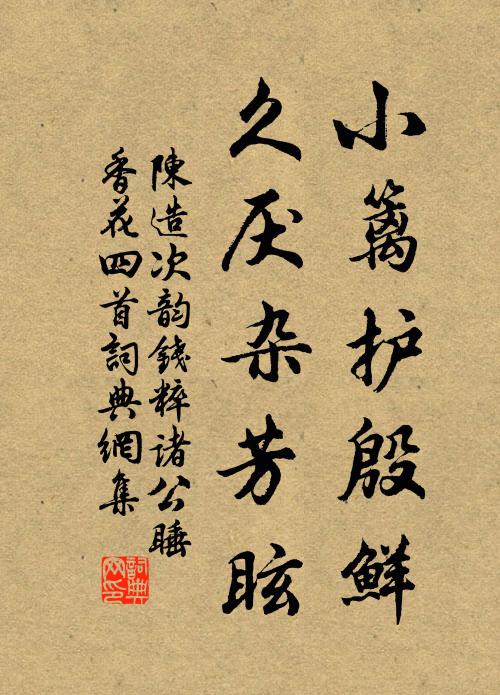 小篱护殷鲜
久厌杂芳眩
陳造次韵錢粹诸公睡
香花四首詞典網集
詞典网印